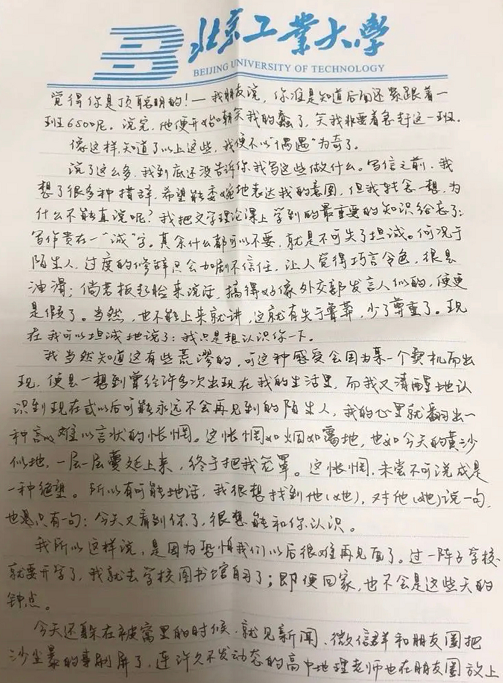 北京工業大學
BEIJING UNIVERSITY OF TECHNOLOGY
觉得你是顶聪明的!—我朋友说,你准是知道后面还紧跟着一
班650呢。说完,他便开始转笑我的蠢了,笑我非要着急赶这一班。
像这样,知道了以上这些,我便不以“偶遇”为奇了。
说了这么多,我到底还没告诉你我写这些做什么。写信之前,我
想了很多种措辞,希望能委婉地表达我的意图,但我转念一想,为
什么不能直说呢?我把文学理论课上学到的最重要的知识给忘了:
写作贵在一“诚”字。其余什么都可以不要,就是不可失了坦诚。何况于
陌生人,过度的修辞只会加剧不信任,让人觉得巧言令色,很是
油滑;倘若板起脸来说话,搞得好像外交部发言人似的,便更
是假了。当然,也不能上来就讲,这就有失于鲁莽,少了尊重。现
在我可以坦诚地说了:我只是想认识你一下。
我当然知道这有些荒谬的,可这种感受会因为某一个契机而出
现,便是一想到曾经许多次出现在我的生活里,而我又清醒地认
识到现在或以后可能永远不会再见到的陌生人,我的心里就翻出一
种言难以言状的怅惘。这怅惘如烟如雾地,也如今天的黄沙
似地,一层层蔓延上来,终于把我笼罩。这怅惘,未尝不可说成是
一种绝望。所以有可能地话,我很想找到他(她),对他(她)说一句,
也是只有一句:今天又看到你了,很想能和你认识。
我所以这样说,是因为恐怕我们以后很难再见面了。过一阵子学校
就要开学了,我就去学校图书馆自习了;即便回家,也不会是这些天的
钟点。
今天还躲在被窝里的时候,就见新闻、微信群和朋友圈把
沙尘暴的事刷屏了,连许久不发动态的高中地理老师也在朋友圈放上